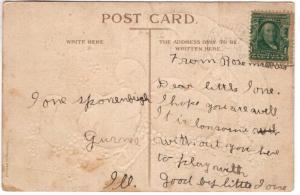 POST CARD.
WRITE HERE.
THE ADDRESS ONLY TO BE
WRITTEN HERE.
Ione Sponenbrigh
Gurnee
Ill.
From Rose
Dear little Ione.
I hope you are well
It is lonsome
without you here
to play with
Good by little Ione